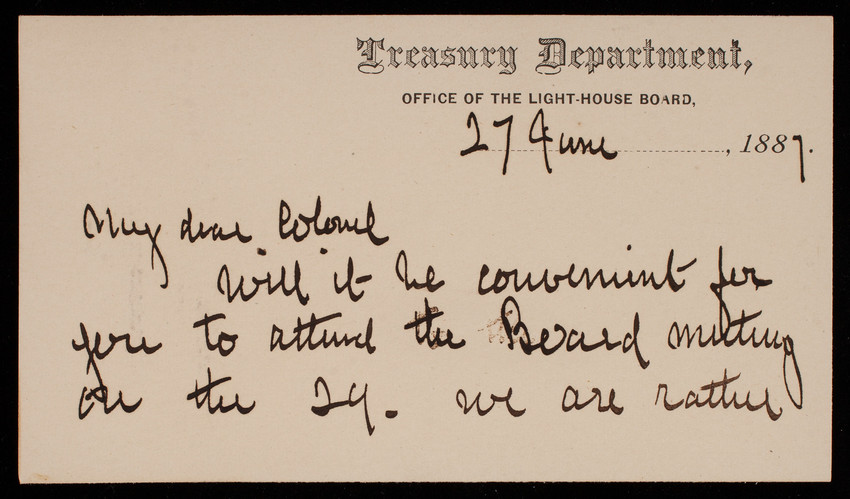 Treasury Department,
OFFICE OF THE LIGHT-HOUSE BOARD,
27 June, 1887.
My dear Colonel
Will it be convenient for
you to attend the Board meeting
on the 29. We are rather